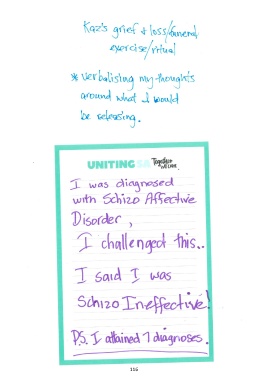 Kaz's grief & loss/funeral
exercise/ritual
* Verbalising my thoughts
around what I would
be releasing.
UNITING SA Together we can.
I was diagnosed
with Schizo Affective
Disorder,
I challenged this..
I said I was
Schizo Ineffective!
P.S. I attained 7 diagnoses.
116